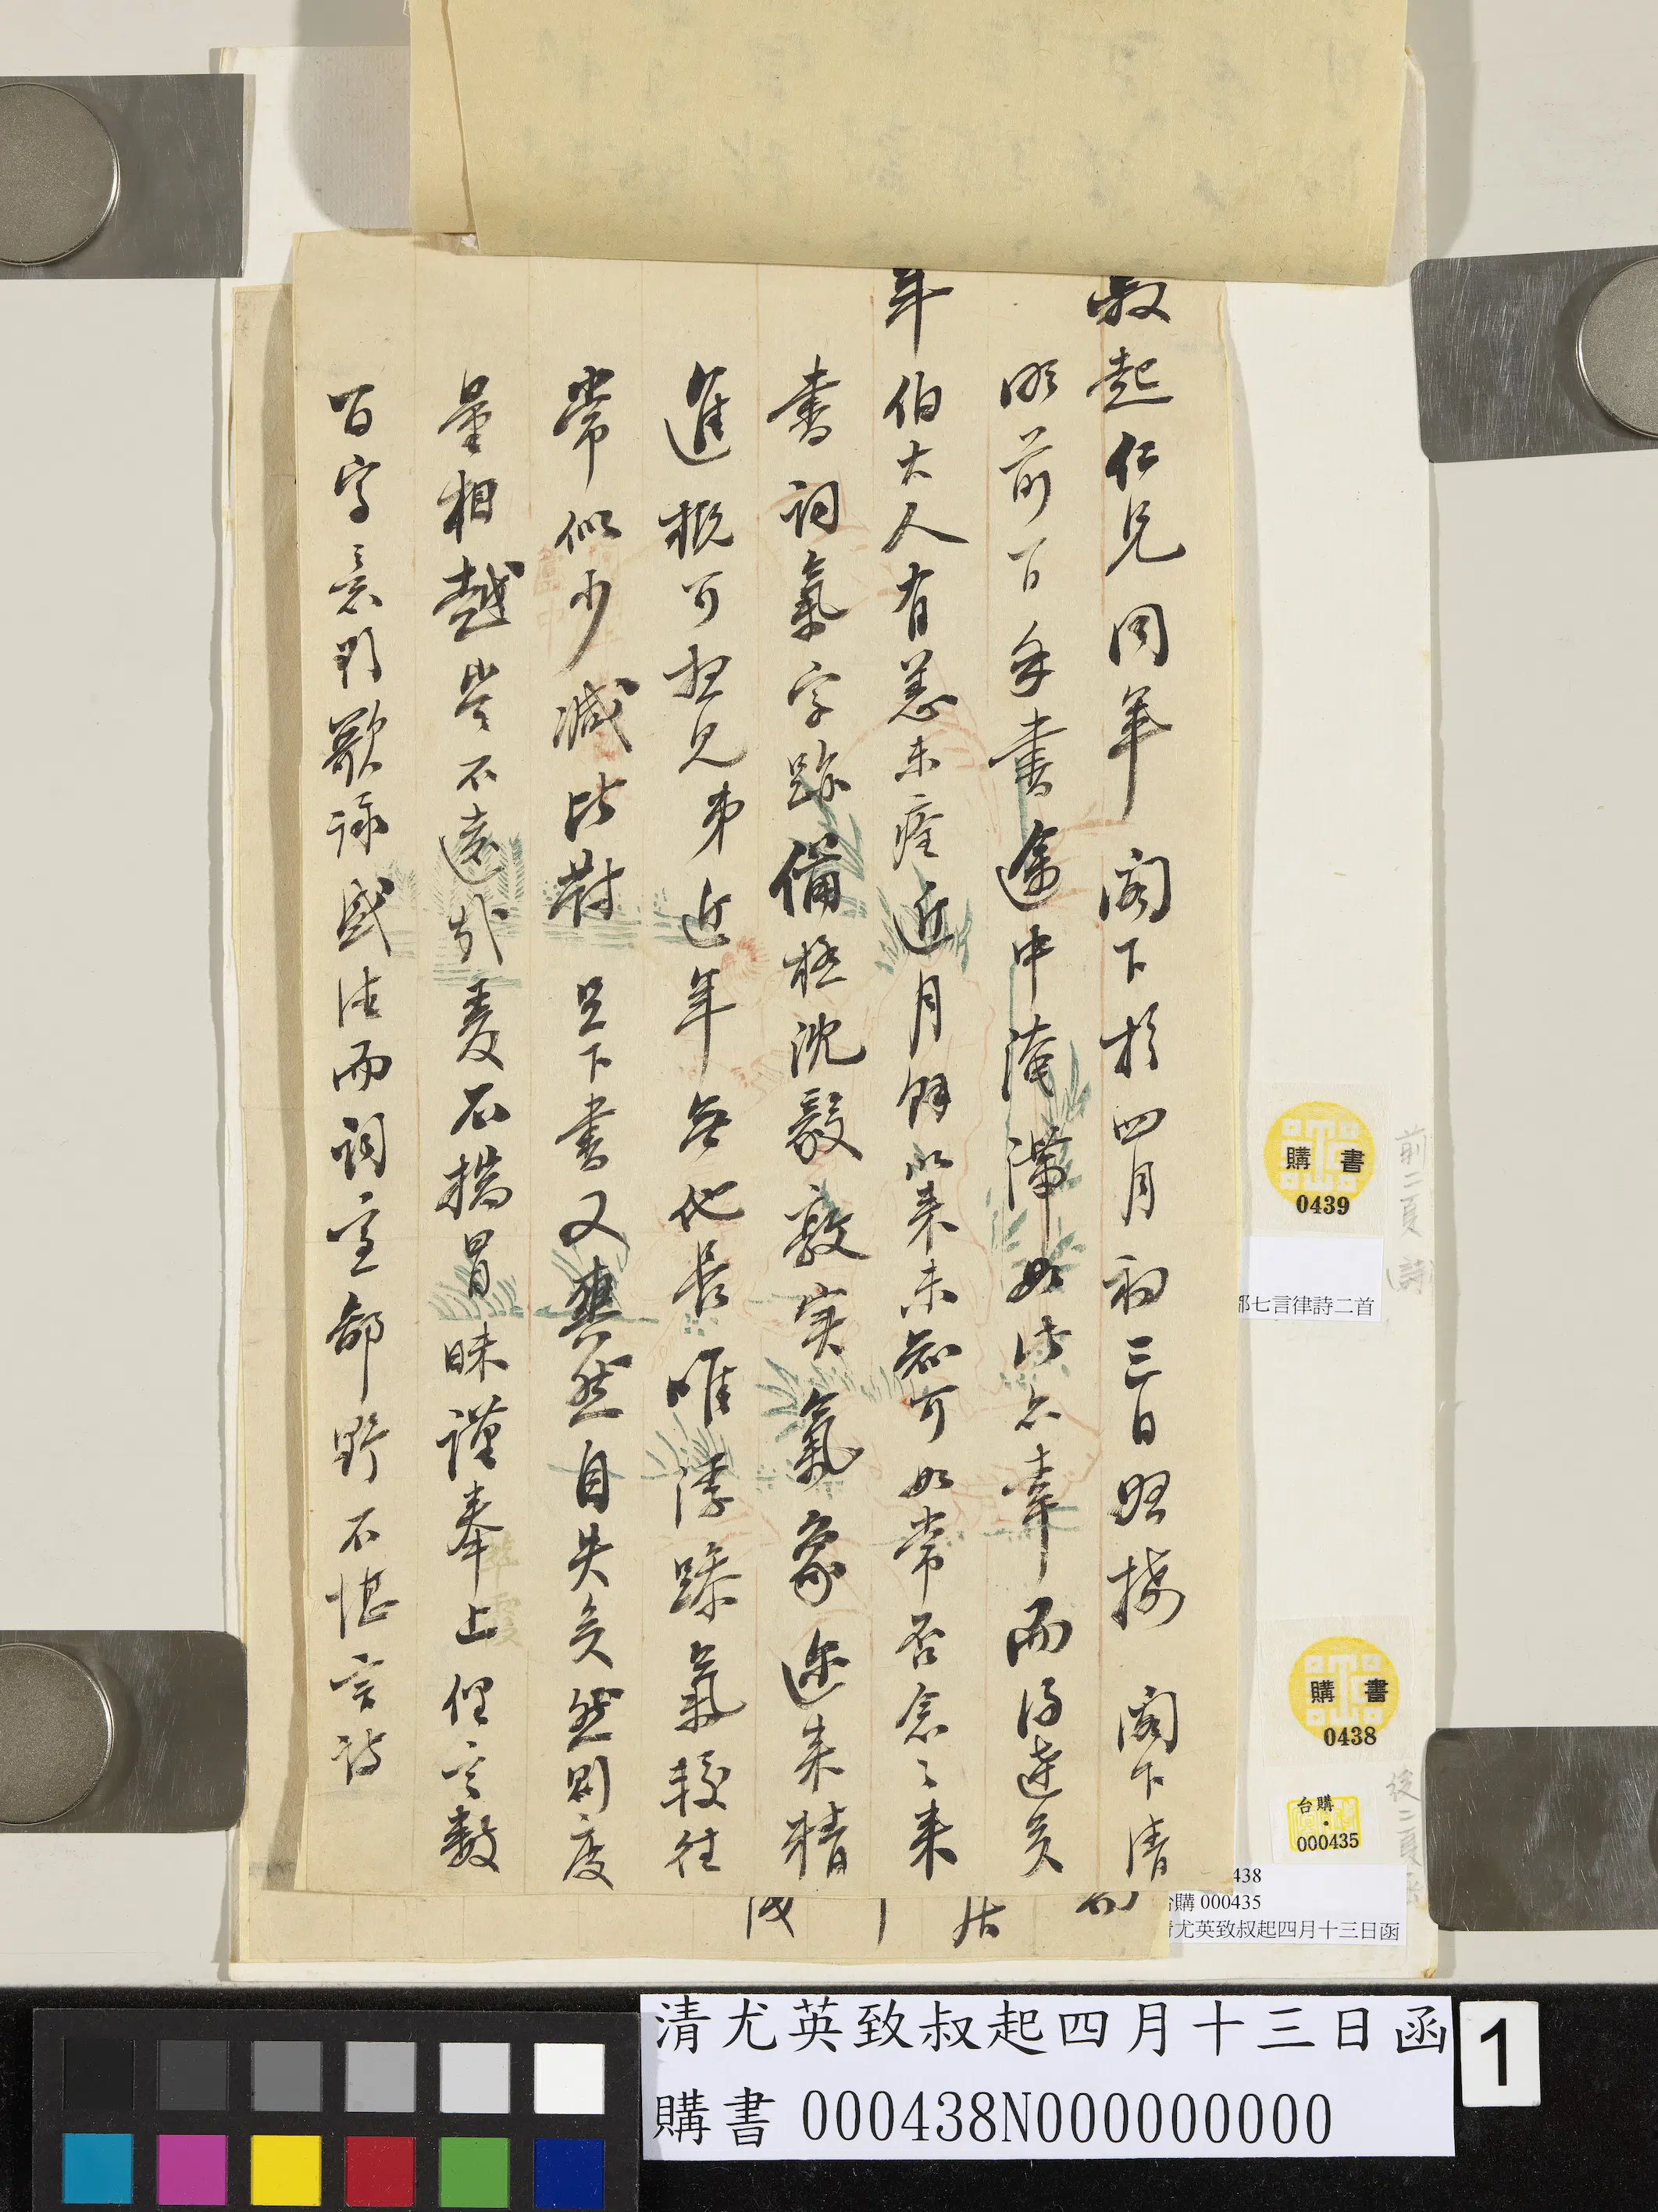 叔起仁兄同年 閣下於四月初三日照接 閣下清
明前一日手書途中淹滯如此亦幸而得達矣
年伯大人有恙未痊近月餘以來未知可如常否念々來
書詞氣字跡備極沈毅敦实氣象邇来精
進概可想見弟近年無他長唯浮躁氣較往
常似少減比對 足下書又爽然自失矣然則度
量相越豈不遠哉夏石檇冒昧謹奉上俚言數
百字意到歌詠盛法而詞意鄙野不堪言詩
購書
0439
部七言律詩二首
前二頁(詩)
購書
0438
台購
000435
後二頁
438
台購 000435
清尤英致叔起四月十三日函
清尤英致叔起四月十三日函
購書 000438N000000000
1